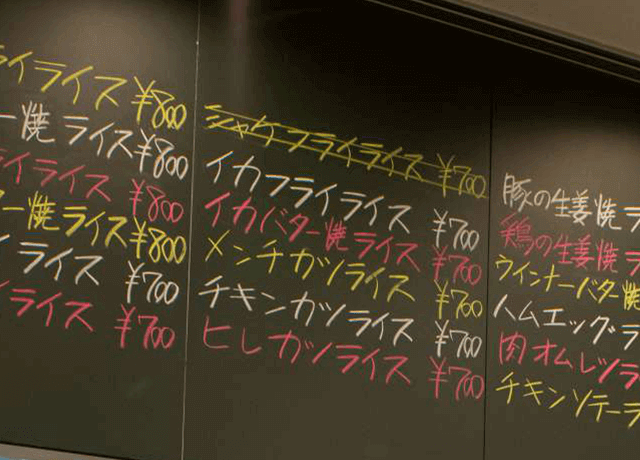 ライライス ¥800
ー焼 ライス ¥800
ライライス ¥800
ー焼ライス ¥800
イライス ¥700
ライス ¥700
シャケフライライス ¥700
イカフライライス ¥700
イカバター焼ライス ¥700
メンチカツライス ¥700
チキンカツライス ¥700
ヒレカツライス ¥700
豚の生姜焼ラ
鶏の生姜焼ラ
ウインナーバター焼
ハムエッグラ
肉オムレツラ
チキンソテーラ